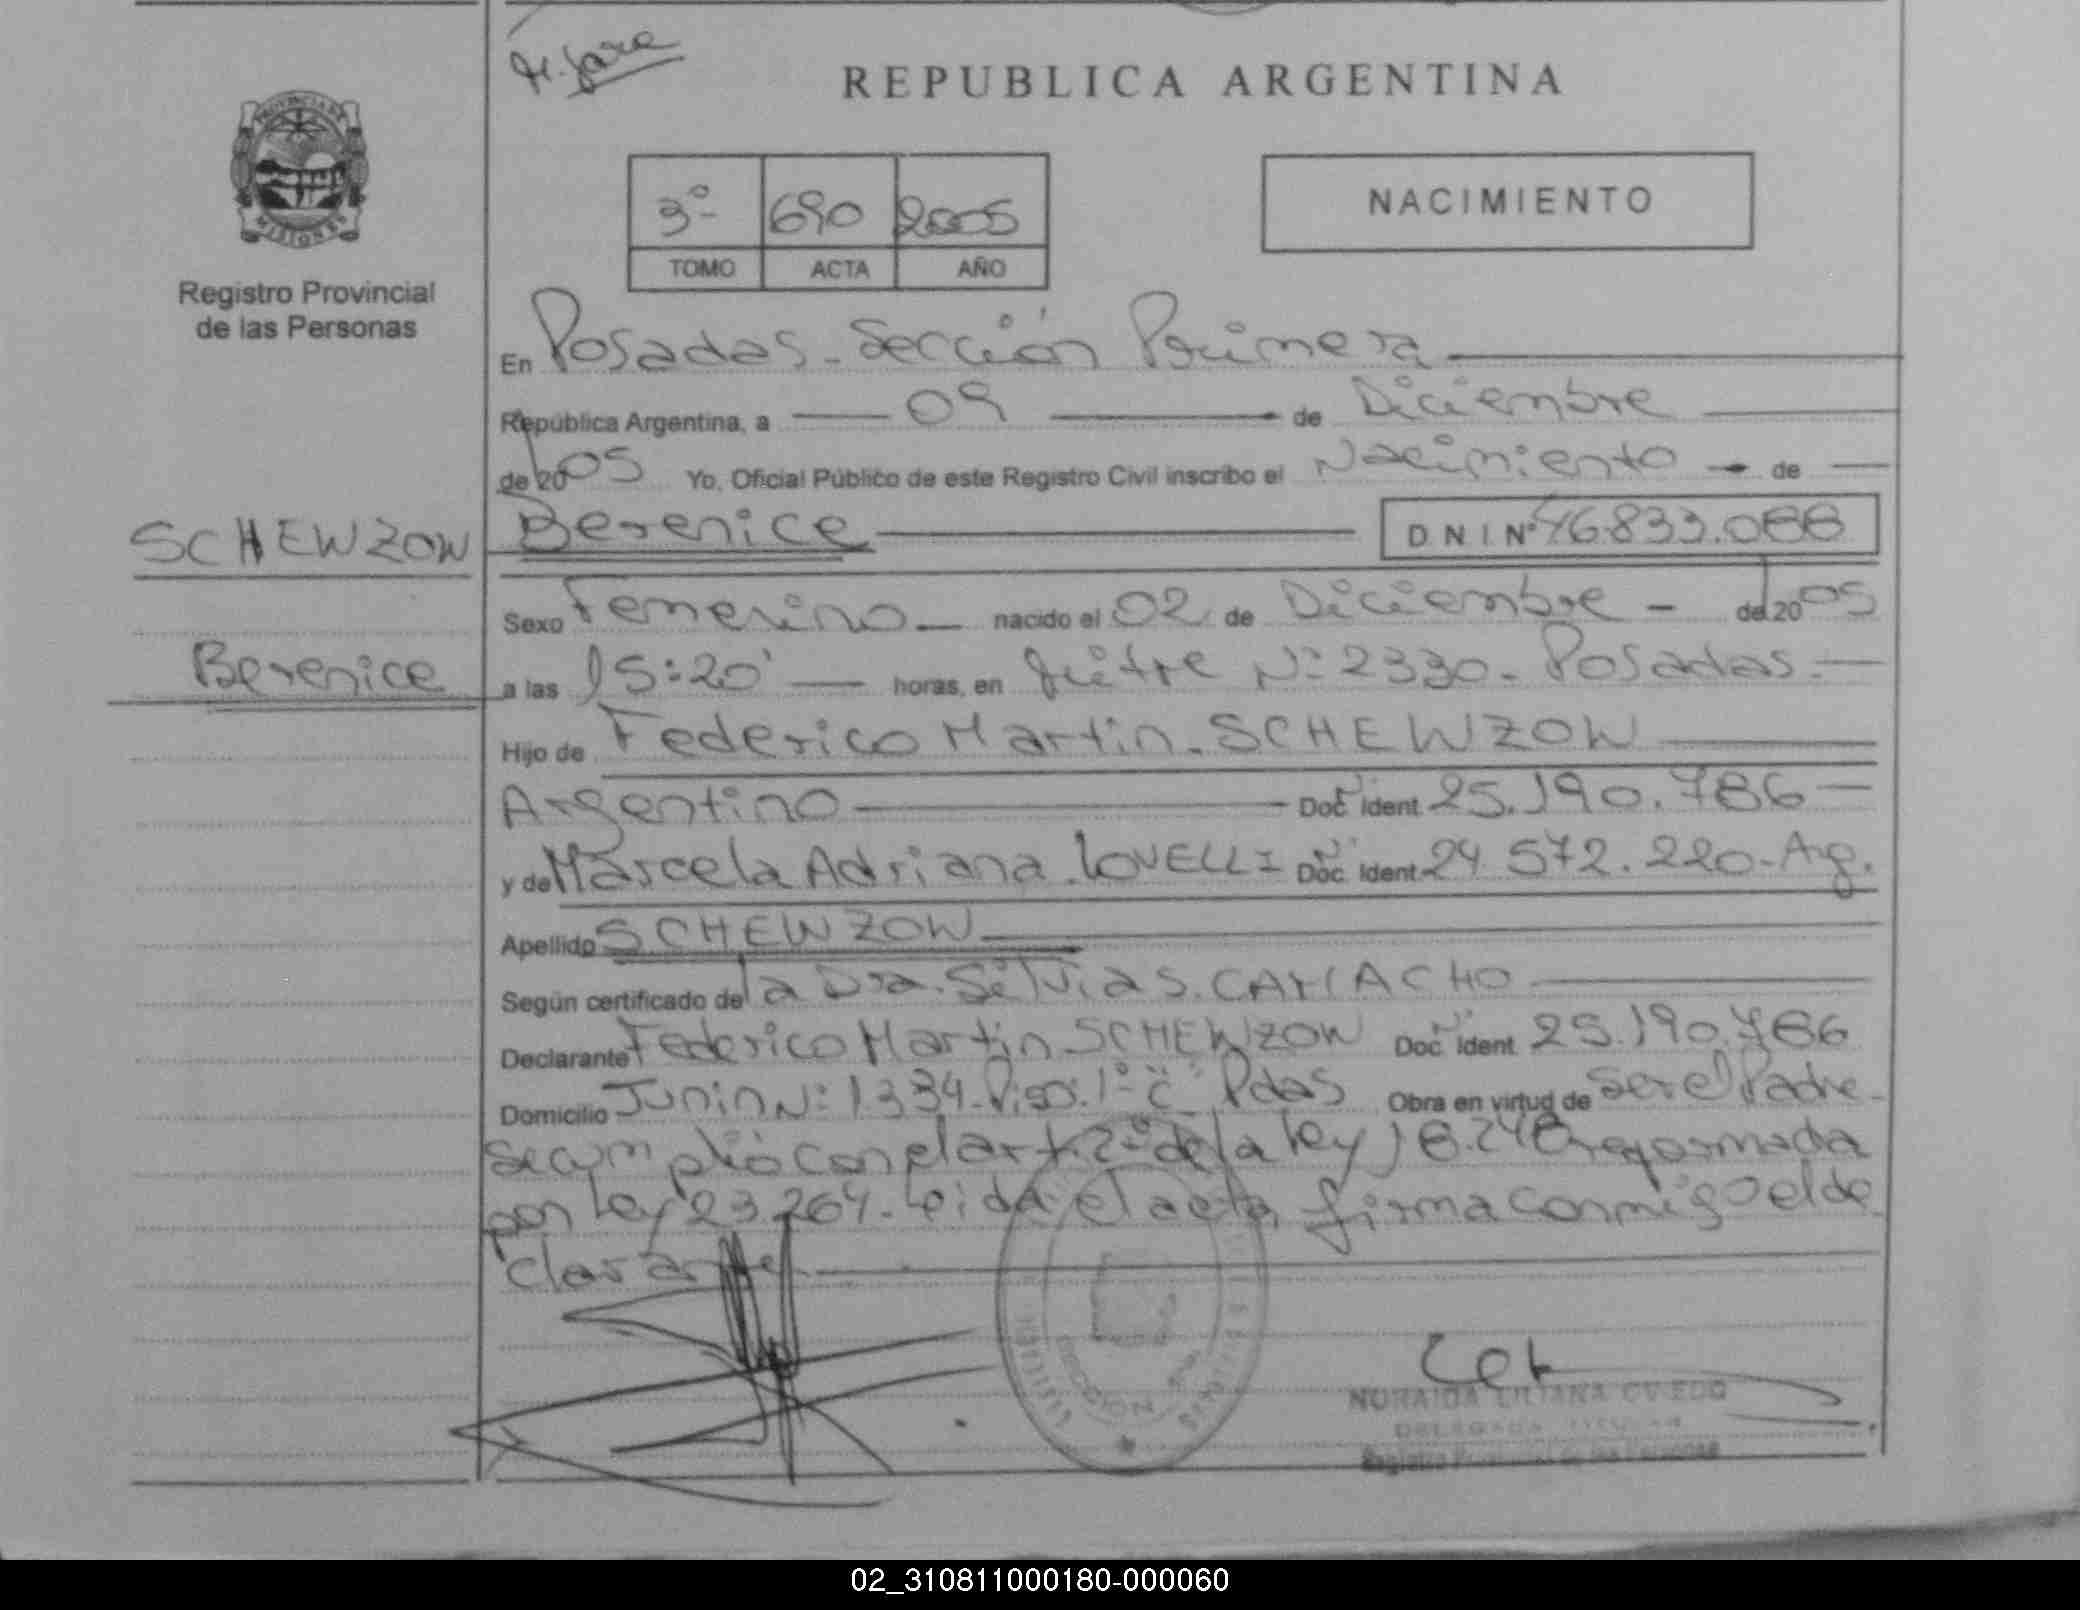 REPUBLICA ARGENTINA
PROVINCIA DE
MISIONES
Registro Provincial
de las Personas
3º 690 2005
TOMO ACTA AÑO
NACIMIENTO
En Posadas - Sección Primera
República Argentina, a 09 de Diciembre
de 2005 Yo, Oficial Público de este Registro Civil inscribo el Nacimiento de
SCHEWZOW
Berenice
Berenice D N I Nº 46.833.088
Sexo Femenino nacido el 02 de Diciembre de 2005
a las 15:20' horas, en Nº 2330 - Posadas
Hijo de Federico Martin SCHEWZOW
Argentino Doc. Ident. 25.190.786
y de Marcela Adriana LOVELLI Doc. Ident. 24.572.220 - Arg.
Apellido SCHEWZOW
Según certificado de la Dra. Silvia S. CAMACHO
Declarante Federico Martin SCHEWZOW Doc. Ident. 25.190.786
Domicilio Junin Nº 1334 - Piso 1º "C" Pdas Obra en virtud de ser el Padre -
Se cumplió con el art. 2º de la Ley 18.248 reformada
por Ley 23.264. Leida el acta, firma conmigo el de
clarante
NURAIDA LILIANA OVIEDO
DELEGADA TITULAR
Registro Provincial de las Personas
02_310811000180-000060